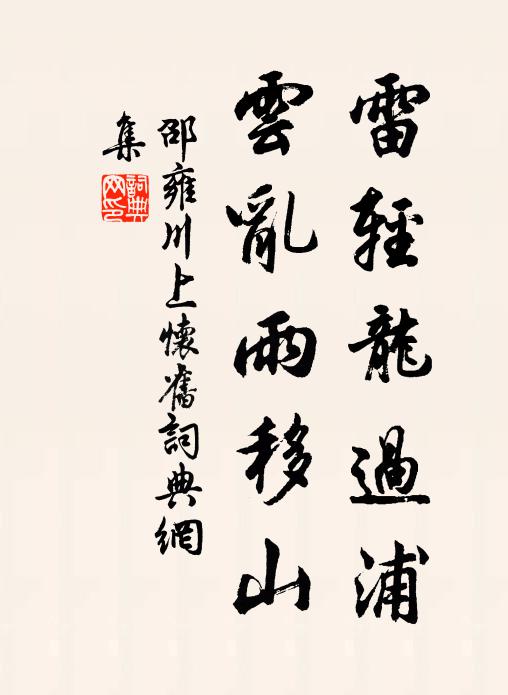 雷輕龍過浦
雲亂雨移山
邵雍川上懷舊詞典網
集
詞典
网印